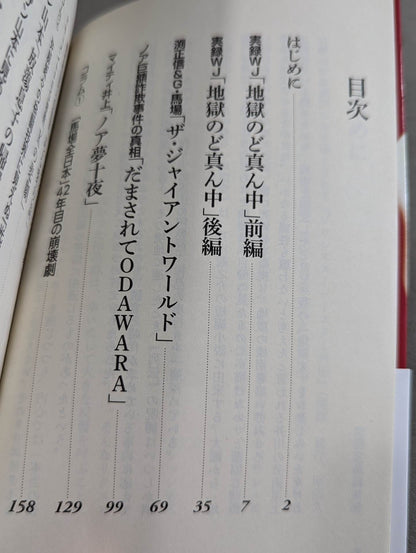 目次
はじめに 2
実録WJ「地獄のど真ん中」前編 7
実録WJ「地獄のど真ん中」後編 35
渕正信&G・馬場「ザ・ジャイアントワールド」 69
ノア巨額詐欺事件の真相「だまされてODAWARA」 99
マイティ井上「ノア夢十夜」 129
「コラム1」「馬場全日本」42年目の崩壊劇 158